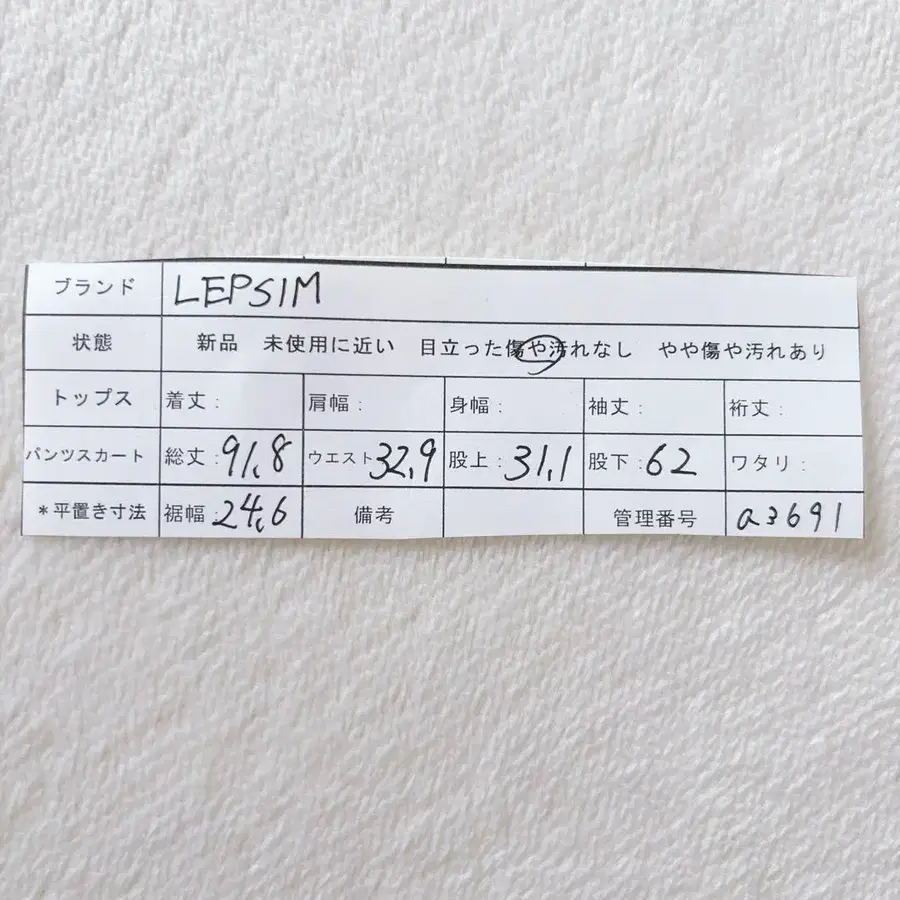 ブランド LEPSIM
状態 新品 未使用に近い 目立った傷や汚れなし やや傷や汚れあり
トップス 着丈: 肩幅: 身幅: 袖丈: 裄丈:
パンツスカート 総丈:91.8 ウエスト32.9 股上:31.1 股下:62 ワタリ:
*平置き寸法 裾幅:24.6 備考 管理番号 a3691